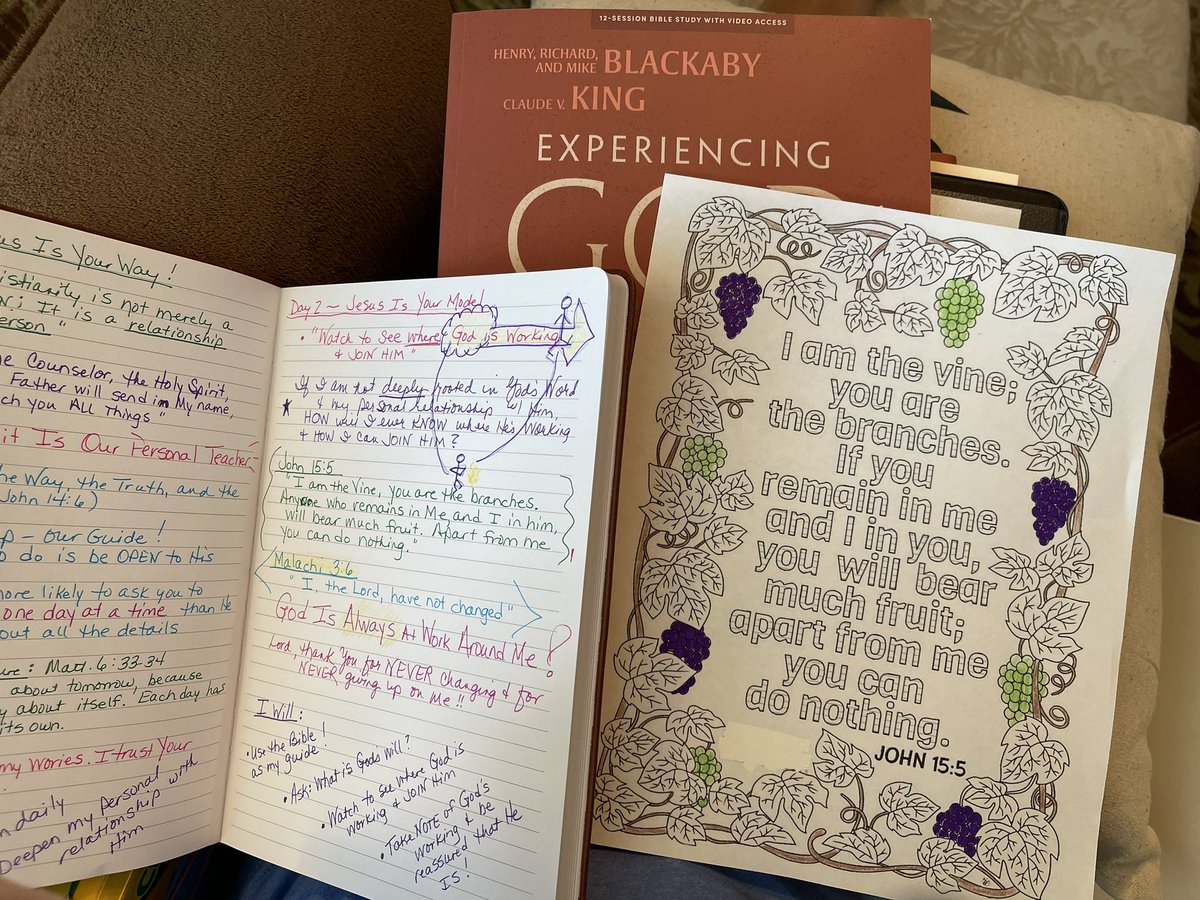 12-SESSION BIBLE STUDY WITH VIDEO ACCESS
HENRY, RICHARD,
AND MIKE BLACKABY
CLAUDE V. KING
EXPERIENCING
GOD
Is Your Way!
is not merely a
It is a relationship
Counselor, the Holy Spirit,
Father will send in My name,
you ALL Things"
Is Our Personal Teacher
Way, the Truth, and the
John 14:6)
- Our Guide!
do is be OPEN to His
more likely to ask you to
one day at a time than He
all the details
: Matt. 6:33-34
about tomorrow, because
about itself. Each day has
its own.
my Worries. I trust Your
daily
Deepen my personal
relationship with
Him
Day 2 ~ Jesus Is Your Model
• "Watch to see where God is Working
& JOIN HIM"
If I am not deeply rooted in God's Word
& my personal relationship w/ Him,
HOW will I ever KNOW where He's Working
& HOW I can JOIN HIM?
John 15:5
"I am the Vine, you are the branches.
Anyone who remains in Me, and I in him,
will bear much fruit. Apart from me
you can do nothing."
Malachi 3:6
"I, the Lord, have not changed"
God Is Always At Work Around Me!
Lord, thank You for NEVER changing & for
NEVER giving up on me!!
I Will:
• Use the Bible!
as my guide!
• Ask: What is Gods will?
• Watch to see where God is
working & JOIN Him
• Take NOTE of God's
working & be
reassured that He
IS!
I am the vine;
you are
the branches.
If you
remain in me
and I in you,
you will bear
much fruit;
apart from me
you can
do nothing.
JOHN 15:5